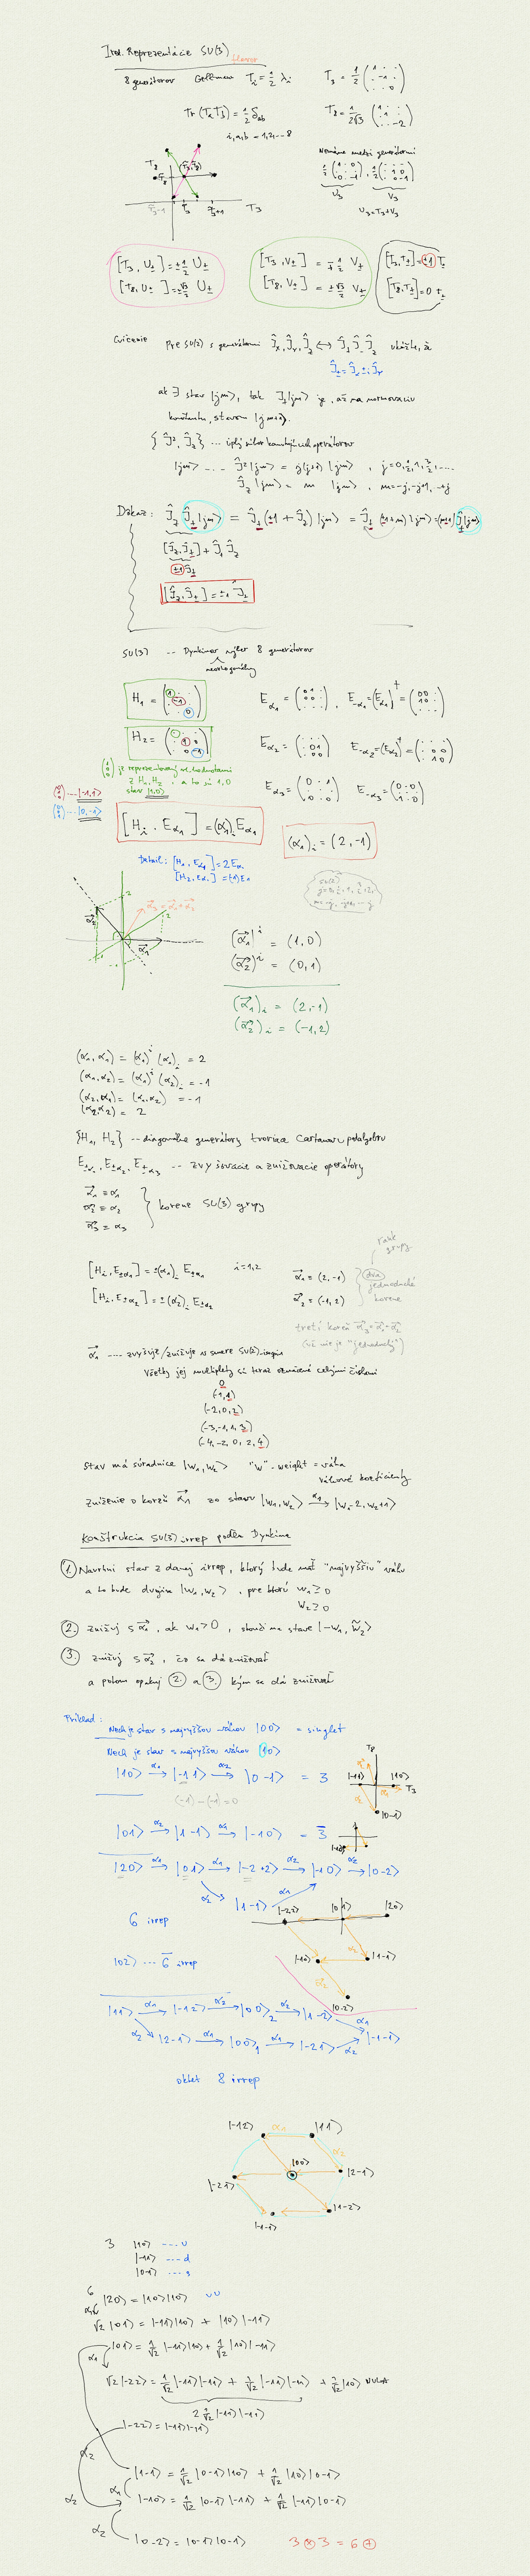 Irred. Reprezentácie SU(3) flavor
8 generátorov Gellmann T_i = 1/2 λ_i
Tr(T_a T_b) = 1/2 δ_ab
i,a,b = 1,2,...8
Nemáme medzi generátormi
U_3 V_3
U_3 = T_3 + V_3
T_8
T_3
[T_3, U_±] = ±1/2 U_±
[T_8, U_±] = ±√3/2 U_±
[T_3, V_±] = ∓1/2 V_±
[T_8, V_±] = ±√3/2 V_±
[T_3, T_±] = ±1 T_±
[T_8, T_±] = 0 T_±
Cvičenie pre SU(2) s generátormi Ĵ_x, Ĵ_y, Ĵ_z ↔ Ĵ_+ Ĵ_- Ĵ_z ukážte, že
Ĵ_± = Ĵ_x ± i Ĵ_y
ak ∃ stav |jm>, tak Ĵ_±|jm> je, až na normovaciu
konštantu, stavom |j m±1>.
{Ĵ², Ĵ_z} ... úplný súbor komutujúcich operátorov
|jm> ... Ĵ²|jm> = j(j+1)|jm>, j = 0, 1/2, 1, 3/2, ....
Ĵ_z|jm> = m|jm>, m = -j, -j+1, ..+j
Dôkaz: Ĵ_z Ĵ_±|jm> = Ĵ_±(±1 + Ĵ_z)|jm> = Ĵ_±(±1+m)|jm> = (m±1) Ĵ_±|jm>
[Ĵ_z, Ĵ_±] + Ĵ_± Ĵ_z
±1 Ĵ_±
[Ĵ_z, Ĵ_±] = ±1 Ĵ_±
SU(3) -- Dynkinov výber 8 generátorov
neortogonálny
H_1 =
H_2 =
E_α1 = , E_-α1 = (E_α1)† =
E_α2 = E_-α2 = (E_α2)† =
E_α3 = E_-α3 =
je reprezentovaný vl. hodnotami
z H_1, H_2, a to sú 1,0
stav |1,0>
... |-1,1>
... |0,-1>
[H_i, E_α1] = (α_1)_i E_α1
(α_1)_i = (2,-1)
detail: [H_1, E_α1] = 2E_α1
[H_2, E_α1] = (-1)E_1
α_3 = α_1 + α_2
α_2
α_1
(α_1)^i = (1,0)
(α_2)^i = (0,1)
(α_1)_i = (2,-1)
(α_2)_i = (-1,2)
(α_1,α_1) = (α_1)^i (α_1)_i = 2
(α_1,α_2) = (α_1)^i (α_2)_i = -1
(α_2,α_1) = (α_1,α_2) = -1
(α_2,α_2) = 2
{H_1, H_2} -- diagonálne generátory tvoriace Cartanovu podalgebru
E_±α1, E_±α2, E_±α3 -- zvyšovacie a znižovacie operátory
α_1 ≡ α_1
α_2 ≡ α_2
α_3 ≡ α_3
korene SU(3) grupy
rank grupy
[H_i, E_±α1] = ±(α_1)_i E_±α1 i=1,2
[H_i, E_±α2] = ±(α_2)_i E_±α2
α_1 = (2,-1)
α_2 = (-1,2)
dva jednoduché korene
tretí koreň α_3 = α_1 + α_2
(už nie je "jednoduchý")
α_1 .... zvyšuje/znižuje v smere SU(2) izospinu
Všetky jej multiplety sú teraz označené celými číslami
0
(-1,1)
(-2,0,2)
(-3,-1,1,3)
(-4,-2,0,2,4)
Stav má súradnice |w_1,w_2> "w" - weight = váha
váhové koeficienty
Zníženie o koreň α_1 zo stavu |w_1,w_2> →α_1 |w_1-2, w_2+1>
Konštrukcia SU(3) irrep podľa Dynkina
1. Navrhni stav z danej irrep, ktorý bude mať "najvyššiu" váhu
a to bude dvojica |w_1,w_2>, pre ktorú w_1 ≥ 0
w_2 ≥ 0
2. znižuj s α_1, ak w_1>0, skonči na stave |-w_1, w̃_2>
3. znižuj s α_2, čo sa dá znižovať
a potom opakuj 2. a 3. kým sa dá znižovať
Príklad:
Nech je stav s najvyššou váhou |00> = singlet
Nech je stav s najvyššou váhou |10>
|10> →α_1 |-11> →α_2 |0-1> = 3
(-1)-(-1)=0
T_8
|-11> |10> T_3
|0-1>
|01> →α_2 |1-1> →α_1 |-10> = 3̄
|20> →α_1 |01> →α_1 |-2+2> →α_2 |-10> →α_2 |0-2>
α_2 |1-1> α_1
6 irrep
|-22> |01> |20>
|-10> |1-1>
|0-2>
|02> ... 6̄ irrep
|11> →α_1 |-12> →α_2 |00>_2 →α_2 |1-2> α_1
α_2 |2-1> →α_1 |00>_1 →α_1 |-21> →α_2 |-1-1>
oktet 8 irrep
|-12> α_1 |11>
α_2
|00>
|-21> |2-1>
|1-2>
|-1-1>
3 |10> ---- u
|-11> ---- d
|0-1> ---- s
6
|20> = |10>|10> uu
√2|01> = |-11>|10> + |10>|-11>
|01> = 1/√2 |-11>|10> + 1/√2 |10>|-11>
√2|-22> = 1/√2 |-11>|-11> + 1/√2 |-11>|-11> + 1/√2 |10> NULA
2 1/√2 |-11>|-11>
|-22> = |-11>|-11>
|1-1> = 1/√2 |0-1>|10> + 1/√2 |10>|0-1>
|-10> = 1/√2 |0-1>|-11> + 1/√2 |-11>|0-1>
|0-2> = |0-1>|0-1>
3 ⊗ 3 = 6 ⊕